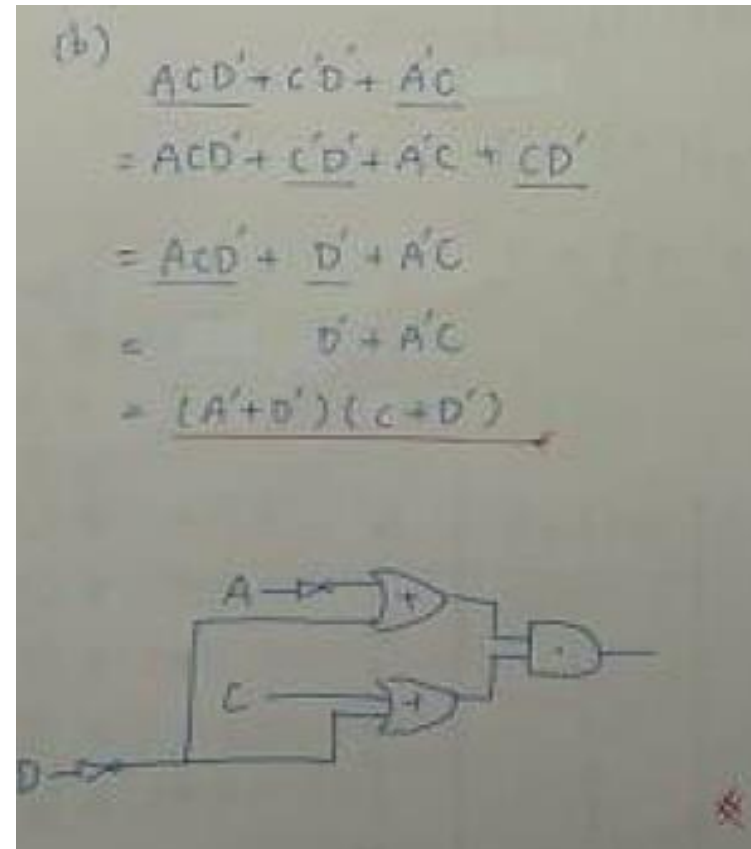 (b)
ACD' + C'D' + A'C
= ACD' + C'D' + A'C + CD'
= ACD' + D' + A'C
= D' + A'C
= (A'+D')(C+D')
A
+
C
+
·
D